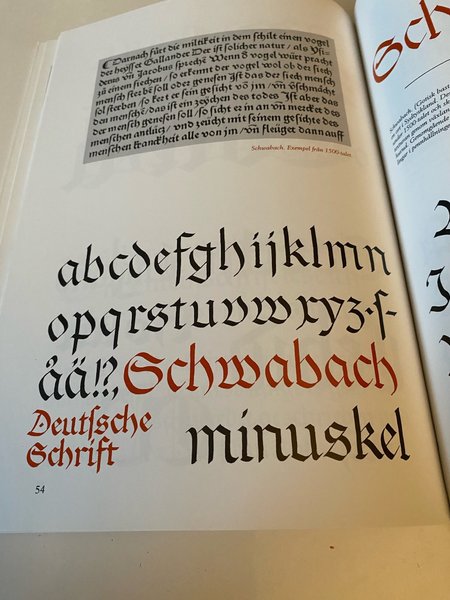 Darnach fürt die miltikeit in dem schilt einen vogel
der heysset Gallander Der ist solicher natur / als Ysi-
Jacobus spreche Wenn vogel würt pracht
zů einem siechen / so erkent der vogel wol ob der siech
mensch sterbē soll oder genesen Ist das der siech mensch
sol sterben / so kert er sein gesicht vō jm /
den mensche / das ist ein zeychen des todes Ist aber das
der mensch genesen soll / so sicht er in an vn̄ mercket des
menschen antlütz / vnd zeucht mit seinem gesichte des
menschen kranckheit alle von jm / vn̄ fleüget dann auff
Schwabach. Exempel från 1500-talet.
abcdefghijklmn
opqrstuvwxyz·ſ-
åä!?,Schwabach
Deutſsche
Schrift
minuskel
54
Sch
Schwabach. (Gotisk bast